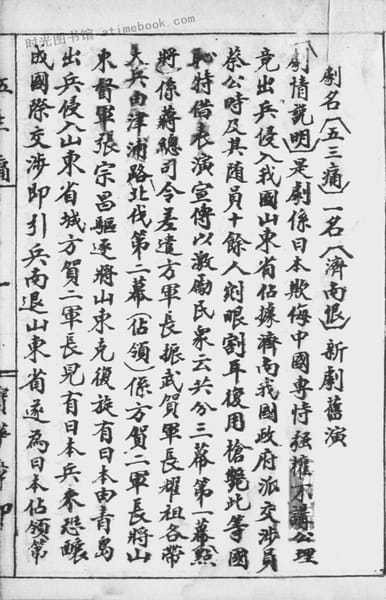 时光图书馆 - atimebook.com
劇名(五三痛)一名(濟南恨)新劇舊演
(劇情説明)是劇係日本欺侮中國專恃强權不講公理
竟出兵侵入我國山東省佔據濟南我國政府派交涉員
蔡公時及其随員十餘人剜眼割耳復用槍斃此等國
恥特借表演宣傳以激勵民衆云共分三幕第一幕(點
將)係蔣總司令差遣方軍長振武賀軍長耀祖各帶
大兵由津浦路北伐第二幕(佔領)係方賀二軍長將山
東督軍張宗昌驅逐將山東克復旋有日本由青島
出兵侵入山東省城方賀二軍長見有日本兵來恐釀
成國際交涉即引兵而退山東省遂為日本佔領第
五三痛
一